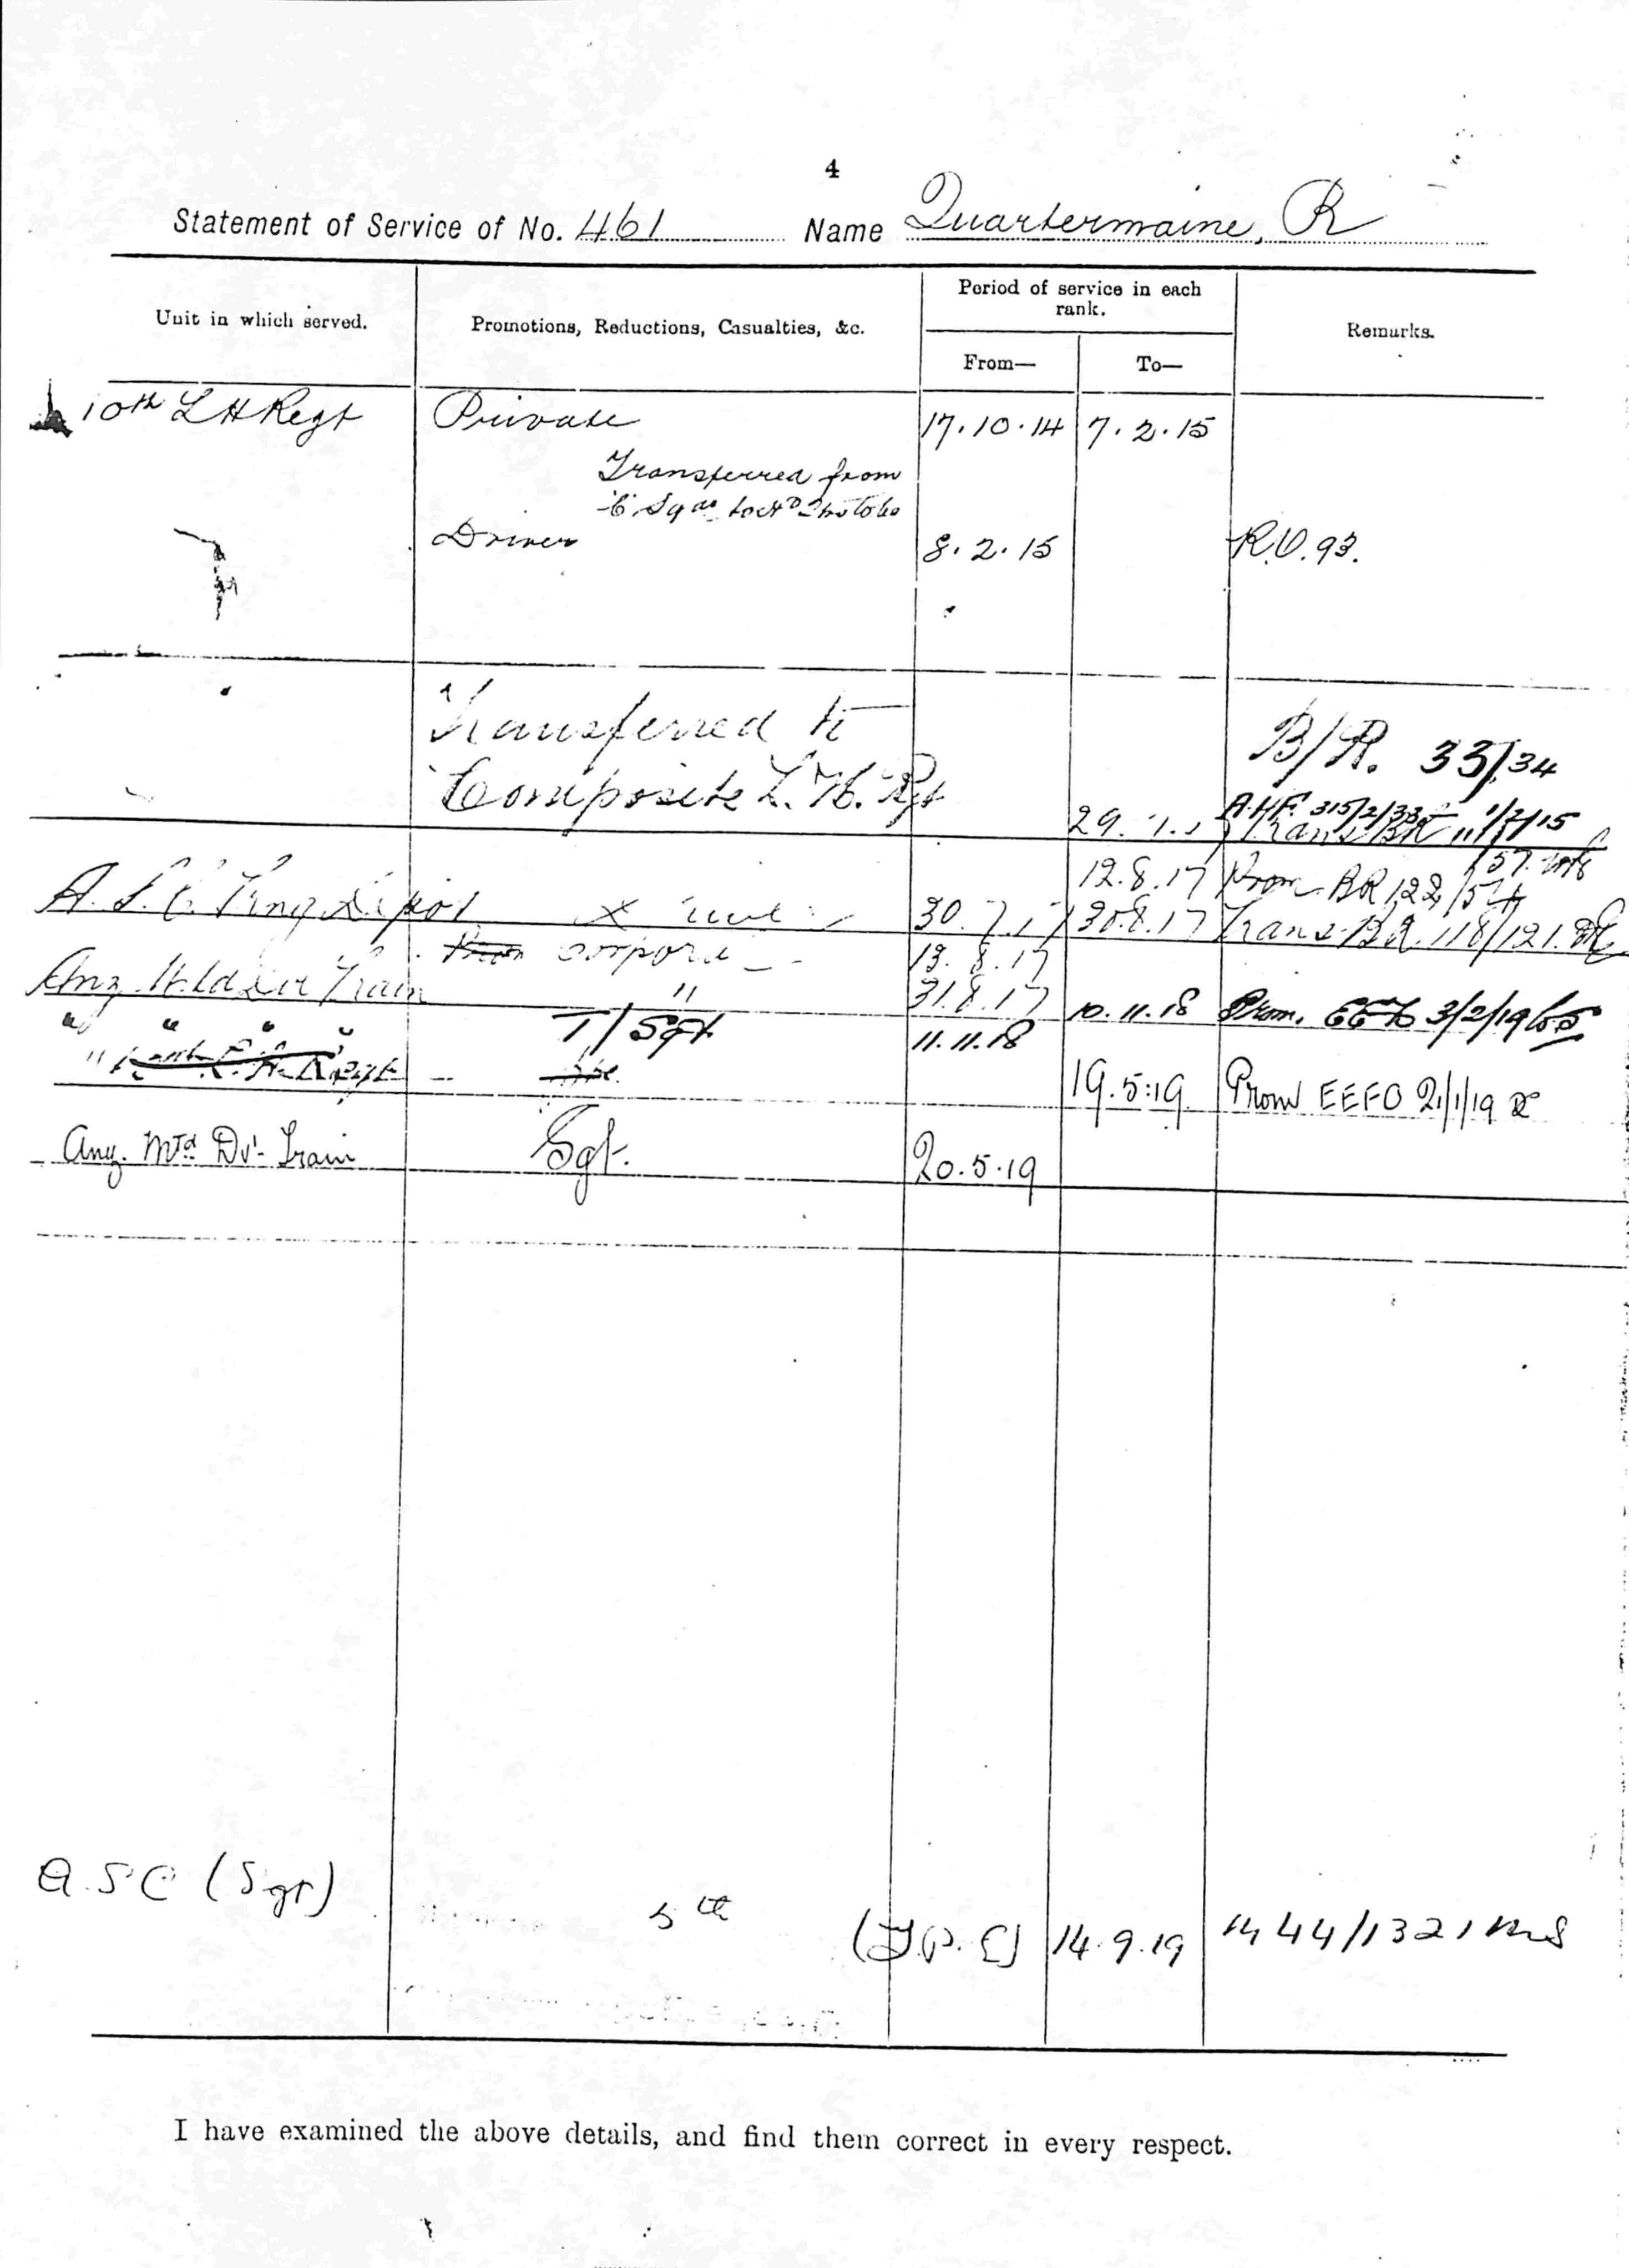 4
Statement of Service of No. 461 Name Quartermaine, R
Period of service in each
rank.
Unit in which served. Promotions, Reductions, Casualties, &c. Remarks.
From— To—
10th LH Regt Private 17.10.14 7.2.15
Transferred from
Driver 8.2.15 R.O. 93.
Transferred to
Composite L.H. Rgt
B/R. 33/34
29.
A.H.F. 315/2/33 1/7/15
12.8.17 Prom BR 122
A.S.C. Trng Depot 30.7.17 30.8.17 Trans BR. 118/121.
corporal 13.8.17
Anz. Mtd Div Train " 31.8.17 10.11.18 Prom. EEFO 3/2/19
" " " " T/Sgt 11.11.18
19.5.19 Prom EEFO 21/1/19
Anz. Mtd Dv. Train Sgt. 20.5.19
A.S.C (Sgt) 5th 14.9.19 44/1321
I have examined the above details, and find them correct in every respect.